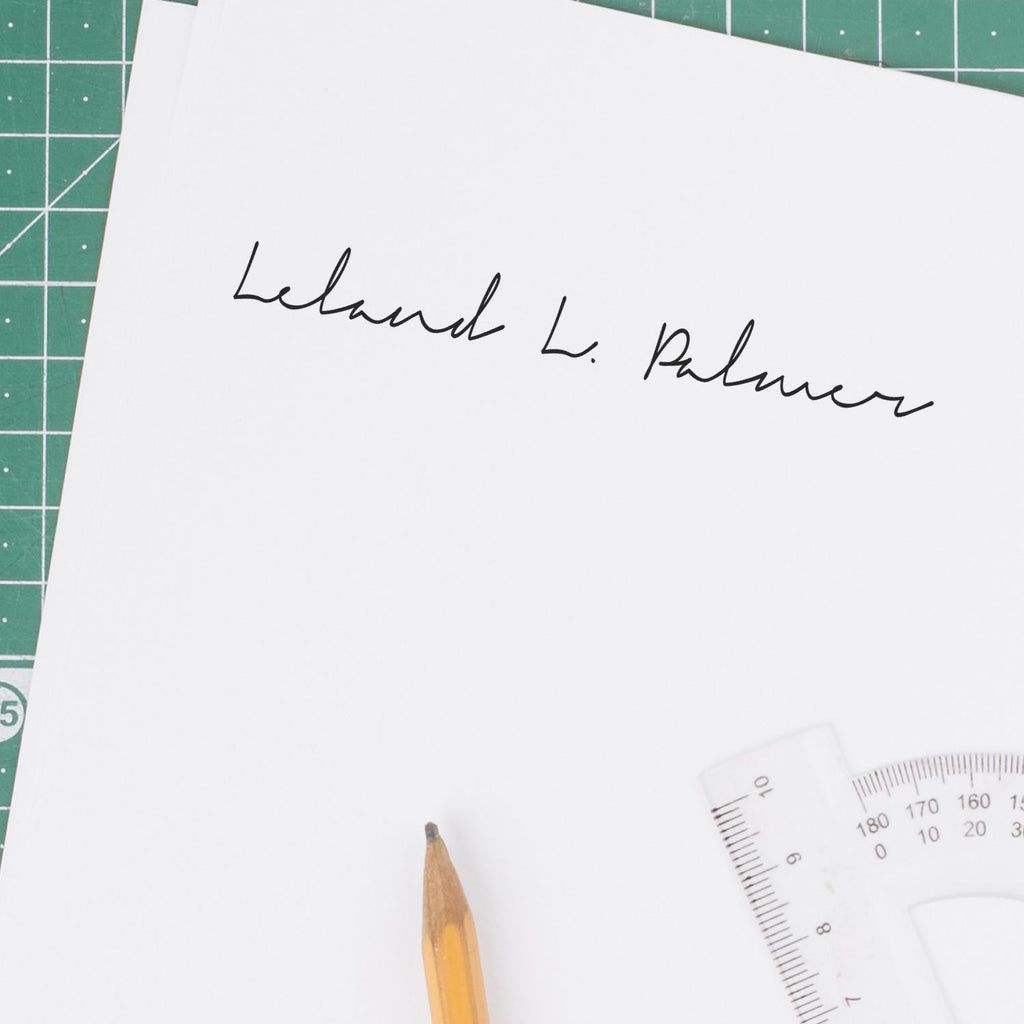 Leland L. Palmer
5
10
9
8
7
180 170 160
0 10 20